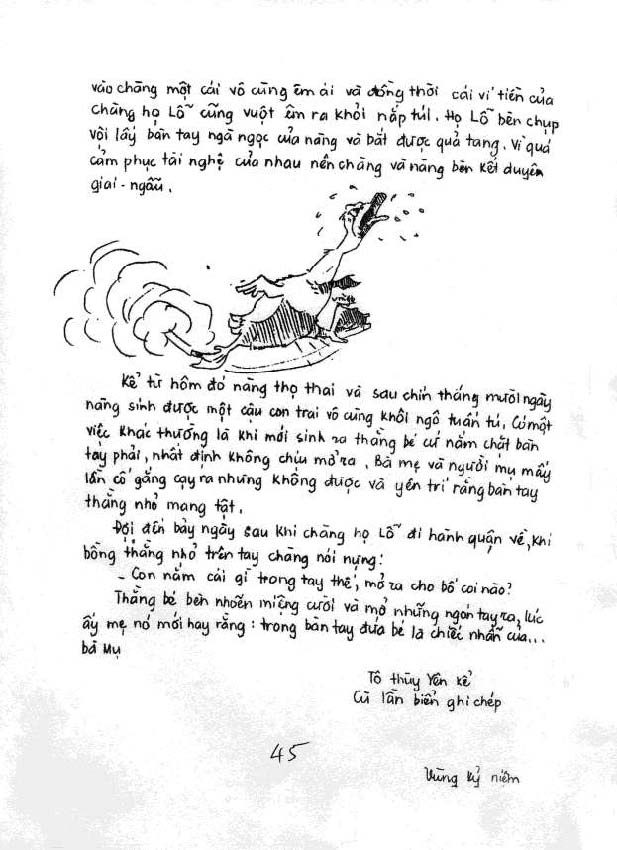 vào chàng một cái vô cùng êm ái và đồng thời cái ví tiền của
chàng họ Lỗ cũng vuột êm ra khỏi nắp túi. Họ Lỗ bèn chụp
vội lấy bàn tay ngà ngọc của nàng và bắt được quả tang. Vì quá
cảm phục tài nghệ của nhau nên chàng và nàng bèn kết duyên
giai-ngẫu.
Kể từ hôm đó nàng thọ thai và sau chín tháng mười ngày
nàng sinh được một cậu con trai vô cùng khôi ngô tuấn tú. Có một
việc khác thường là khi mới sinh ra thằng bé cứ nắm chặt bàn
tay phải, nhất định không chịu mở ra. Bà mẹ và người mụ mấy
lần cố gắng cạy ra nhưng không được và yên trí rằng bàn tay
thằng nhỏ mang tật.
Đợi đến bảy ngày sau khi chàng họ Lỗ đi hành quân về, khi
bồng thằng nhỏ trên tay chàng nói nựng:
- Con nắm cái gì trong tay thế, mở ra cho bố coi nào?
Thằng bé bèn nhoẻn miệng cười và mở những ngón tay ra, lúc
ấy mẹ nó mới hay rằng: trong bàn tay đứa bé là chiếc nhẫn của...
bà Mụ
Tô Thùy Yên kể
Cù lần biển ghi chép
45
Vùng kỷ niệm